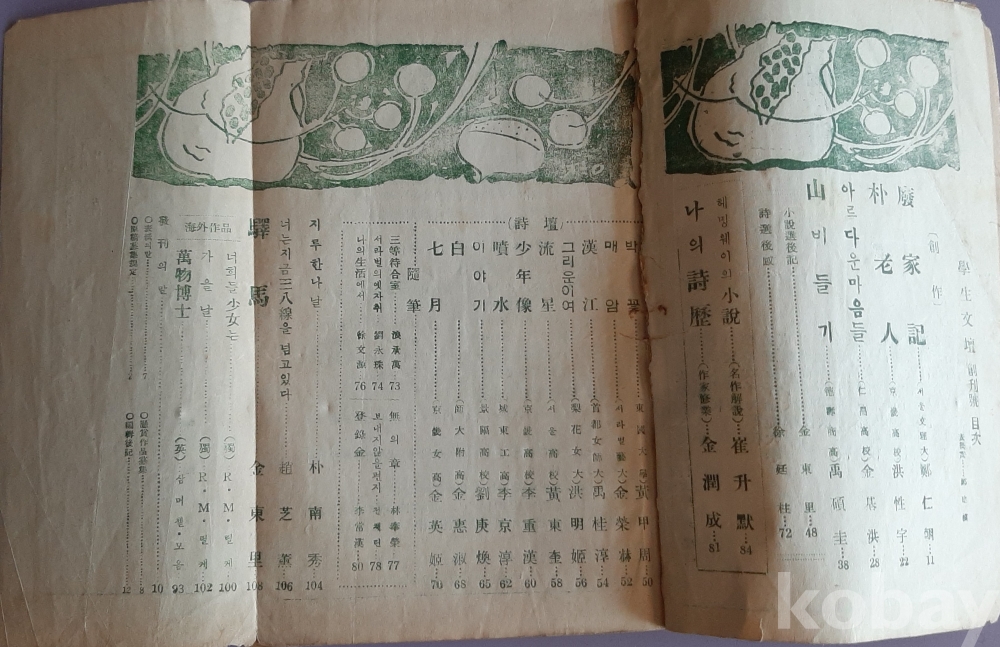 學生文壇 創刊號 目次
(創作)
廢家記 (서울文理大) 鄭仁 11
朴老人 (京畿高校) 洪性字 22
아르다운마음들 (仁高校) 金基洪 28
山비들기 禹碩圭 38
小說選後記 金東里 48
詩選後感 徐廷柱 72
헤밍웨이의小說 (名作解說) 崔升默 84
나의詩歷 (作家修業) 金潤成 81
(詩壇)
박꽃 (東國大學) 黃甲周 50
매암 (서라벌藝大) 金榮 52
漢江 (首都女師大) 禹桂淳 54
그리운이여 (梨花女大) 洪明姬 56
流星 (서울) 黃東奎 58
少年像 (京畿高校) 李重漢 60
噴水 (城東工高) 李京淳 62
이야기 (景福高校) 劉庚煥 65
白 (師大附高) 金惠淑 68
七月 (京畿女高) 金英姬 70
隨筆
三等待合室 承萬 73
서라벌의옛자취 劉永珠 74
나의生活에서 徐文源 76
無의章 林 榮 77
보내지않을편지 전혜린 78
登錄金 李常漢 80
지루한나날 朴南秀 104
너는지금三八線을넘고있다 趙芝薰 106
驛馬 金東里 108
海外作品
너희들少女는 (獨) R·M·릴케 100
가을날 (獨) R·M·릴케 102
萬物博士 (英) 삼머젤·모옴 93
發刊의말 10
○表紙의말 7
○懸賞作品募集 8
○編輯後記 12
kobay